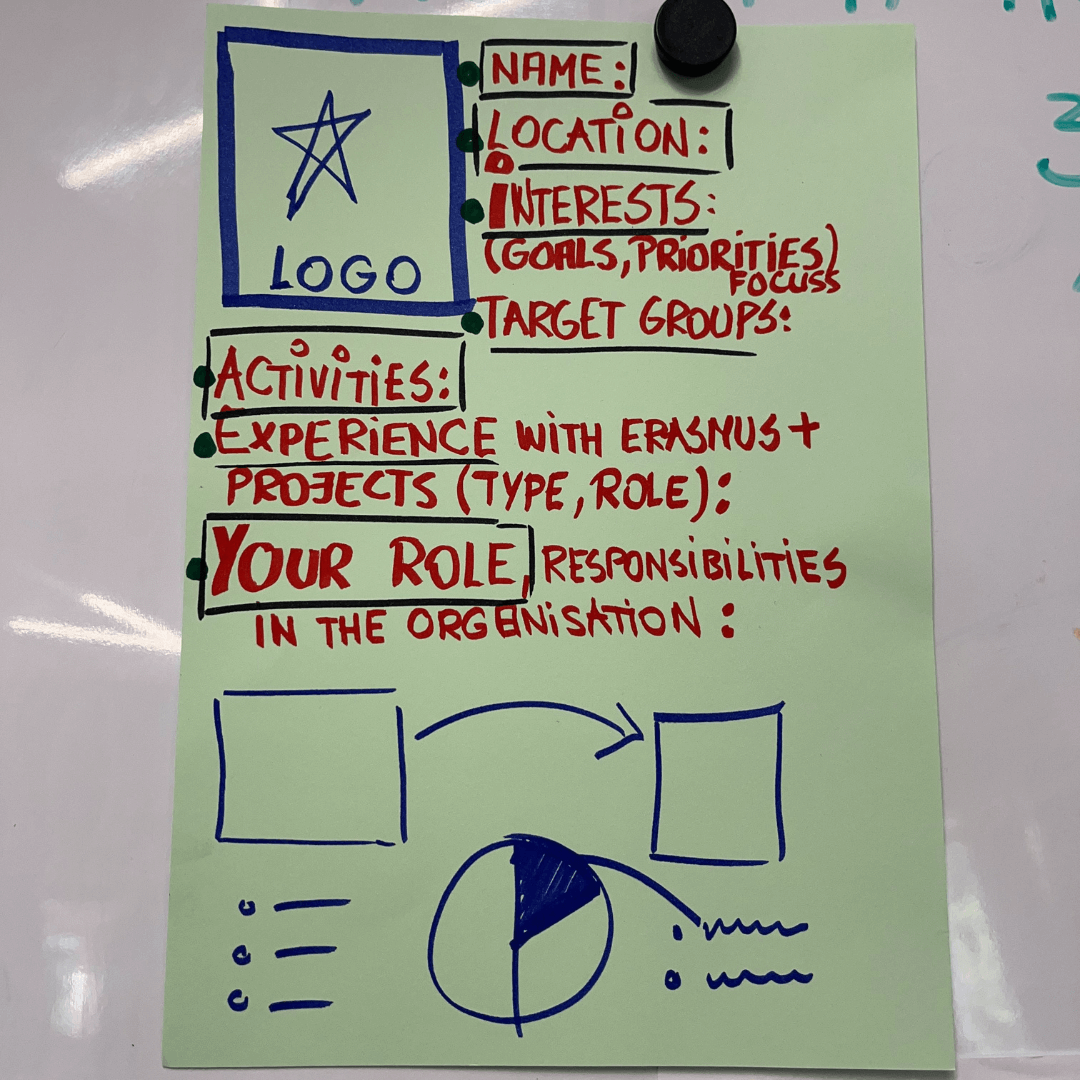 LOGO
NAME:
LOCATION:
INTERESTS:
(GOALS, PRIORITIES)
FOCUSS
TARGET GROUPS:
ACTIVITIES:
EXPERIENCE WITH ERASMUS+
PROJECTS (TYPE, ROLE):
YOUR ROLE, RESPONSIBILITIES
IN THE ORGANISATION: